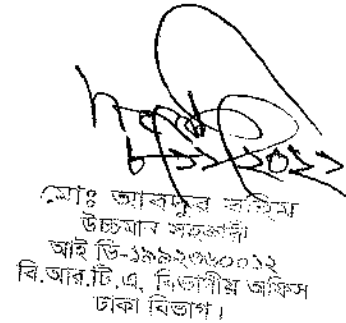 ৮/১১/২০১১
মোঃ আবদুর রহিম
উচ্চমান সহকারী
আই ডি-১৯৯২৩৬০০১২
বি.আর.টি.এ, বিভাগীয় অফিস
ঢাকা বিভাগ।